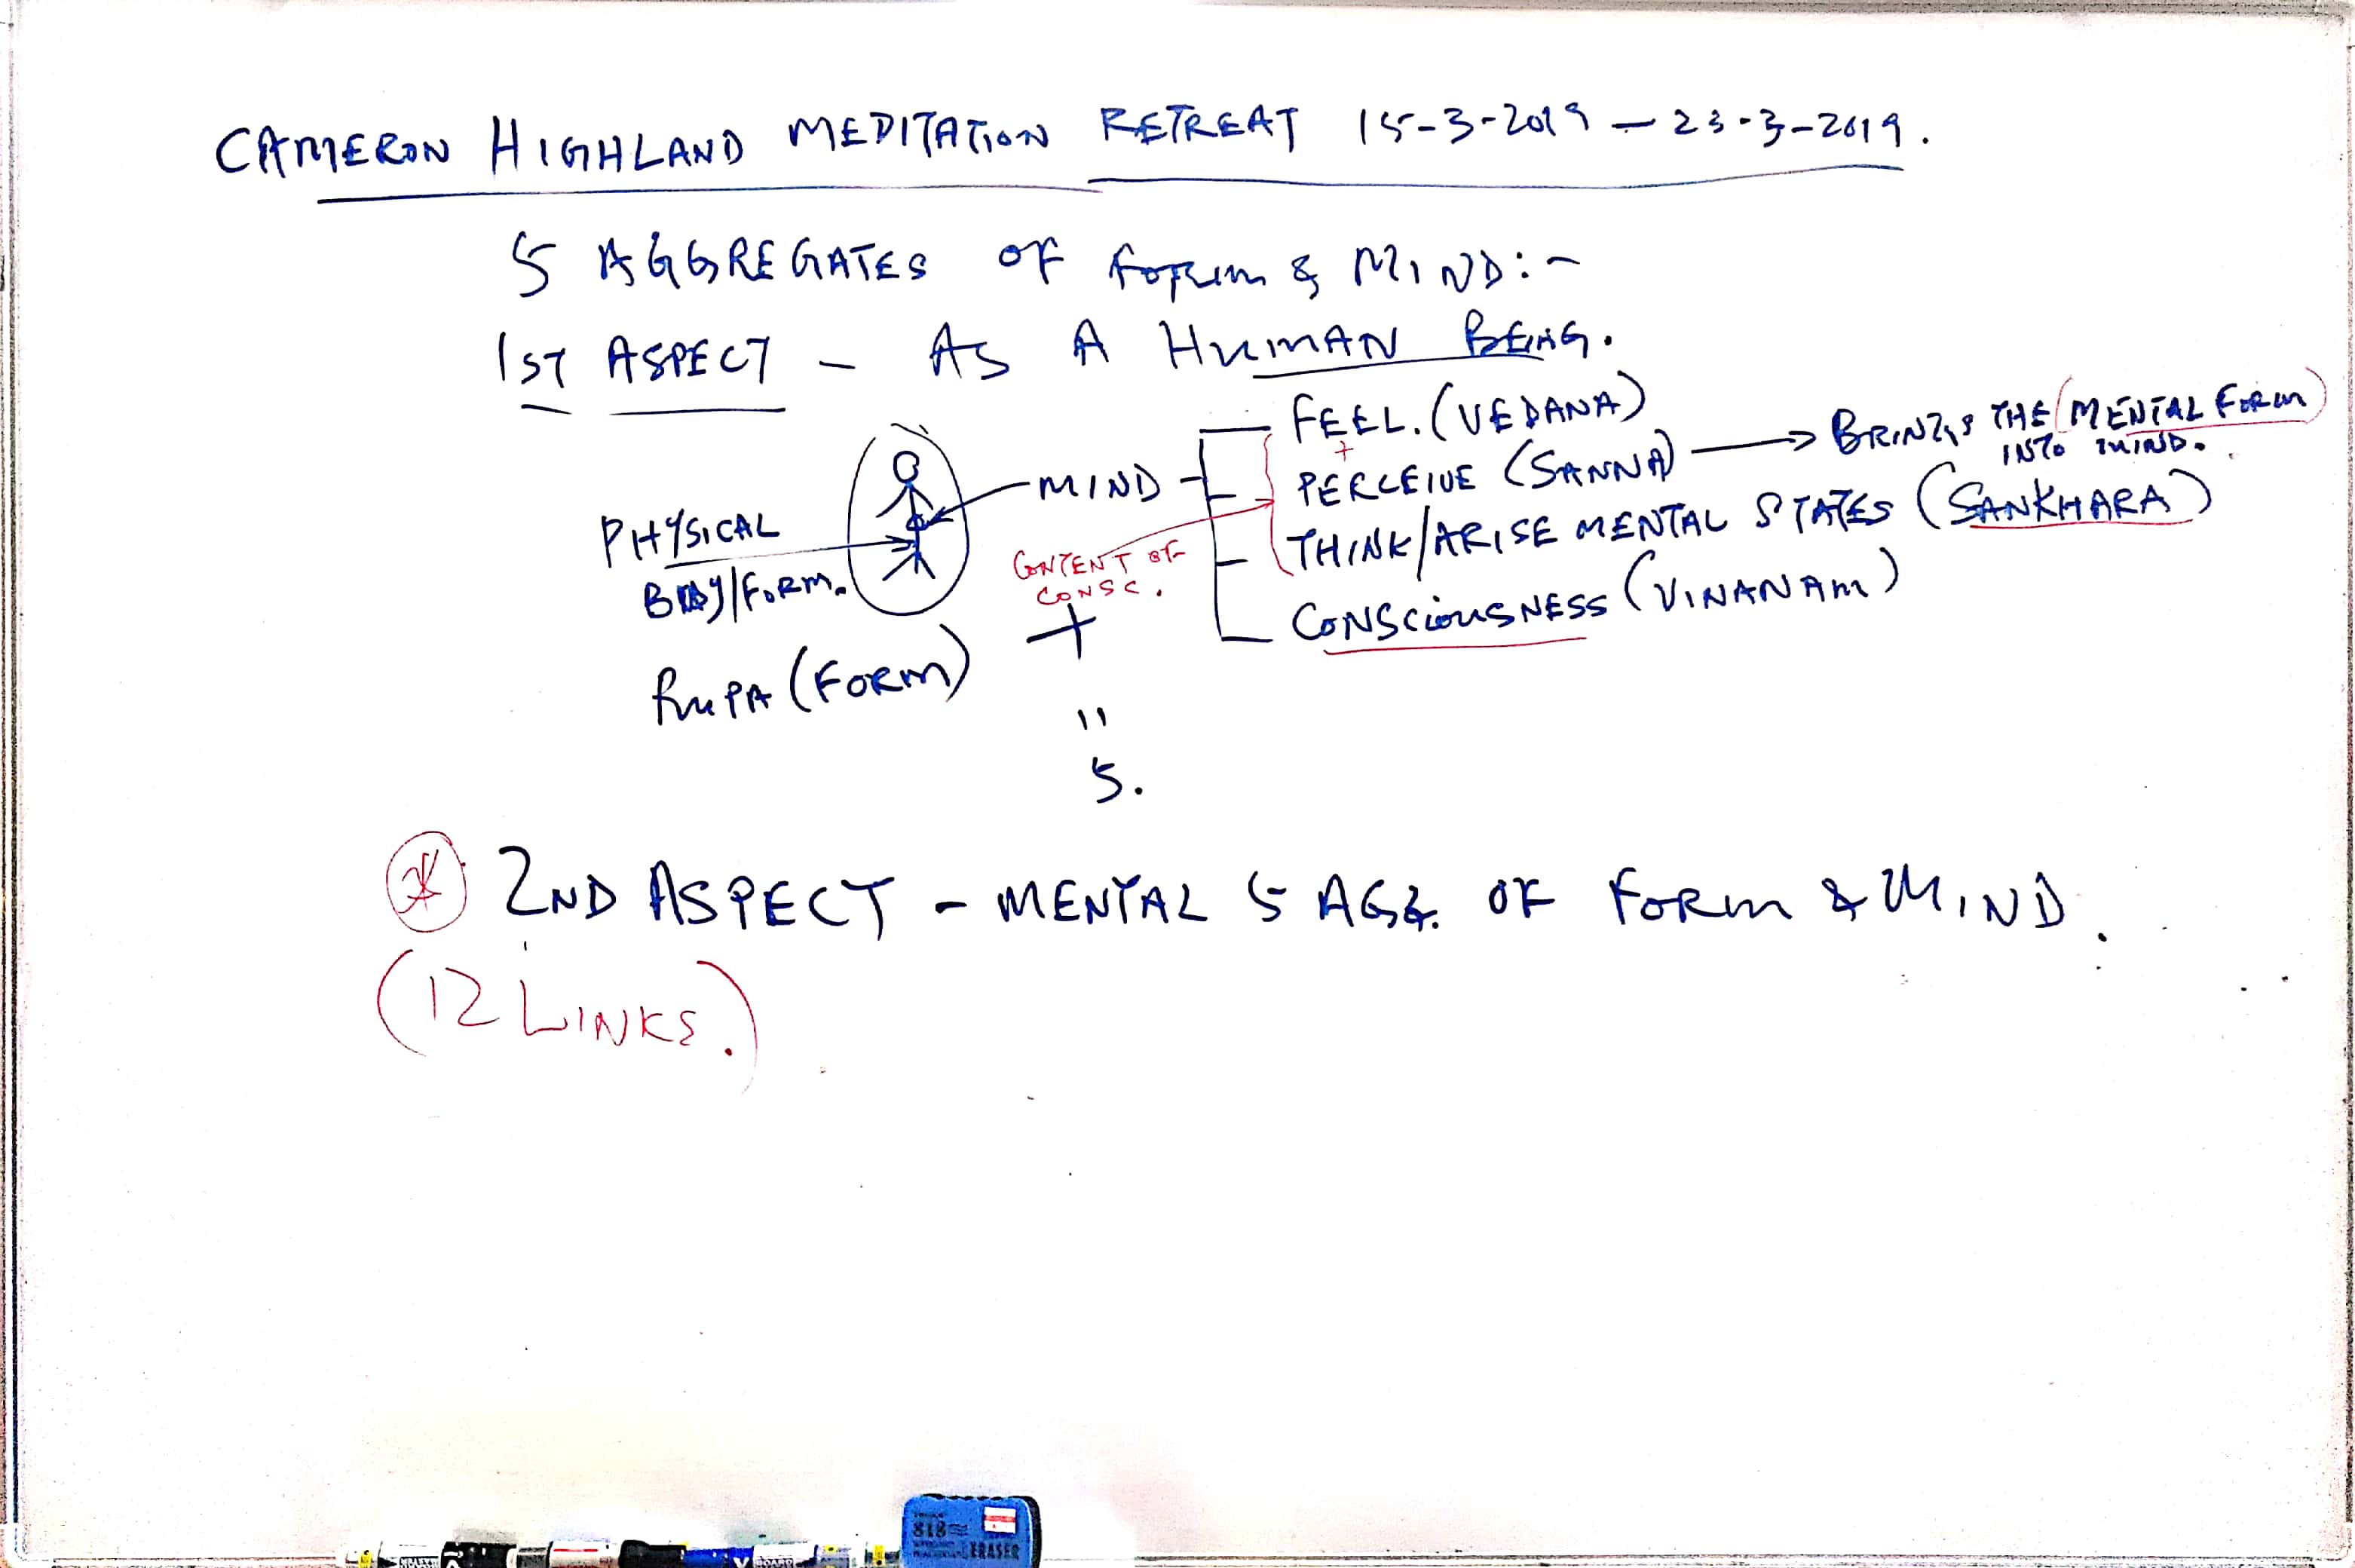 CAMERON HIGHLAND MEDITATION RETREAT 15-3-2019 — 23-3-2019.
5 AGGREGATES OF FORM & MIND:-
1ST ASPECT - AS A HUMAN BEING.
FEEL. (VEDANA)
+
PERCEIVE (SANNA) → BRINGS THE (MENTAL FORM)
INTO MIND.
MIND
THINK/ARISE MENTAL STATES (SANKHARA)
CONSCIOUSNESS (VINANAM)
PHYSICAL
BODY/FORM.
CONTENT OF
CONSC.
RUPA (FORM)
+
"
5.
* 2ND ASPECT - MENTAL 5 AGG. OF FORM & MIND.
(12 LINKS.)
818
ERASER